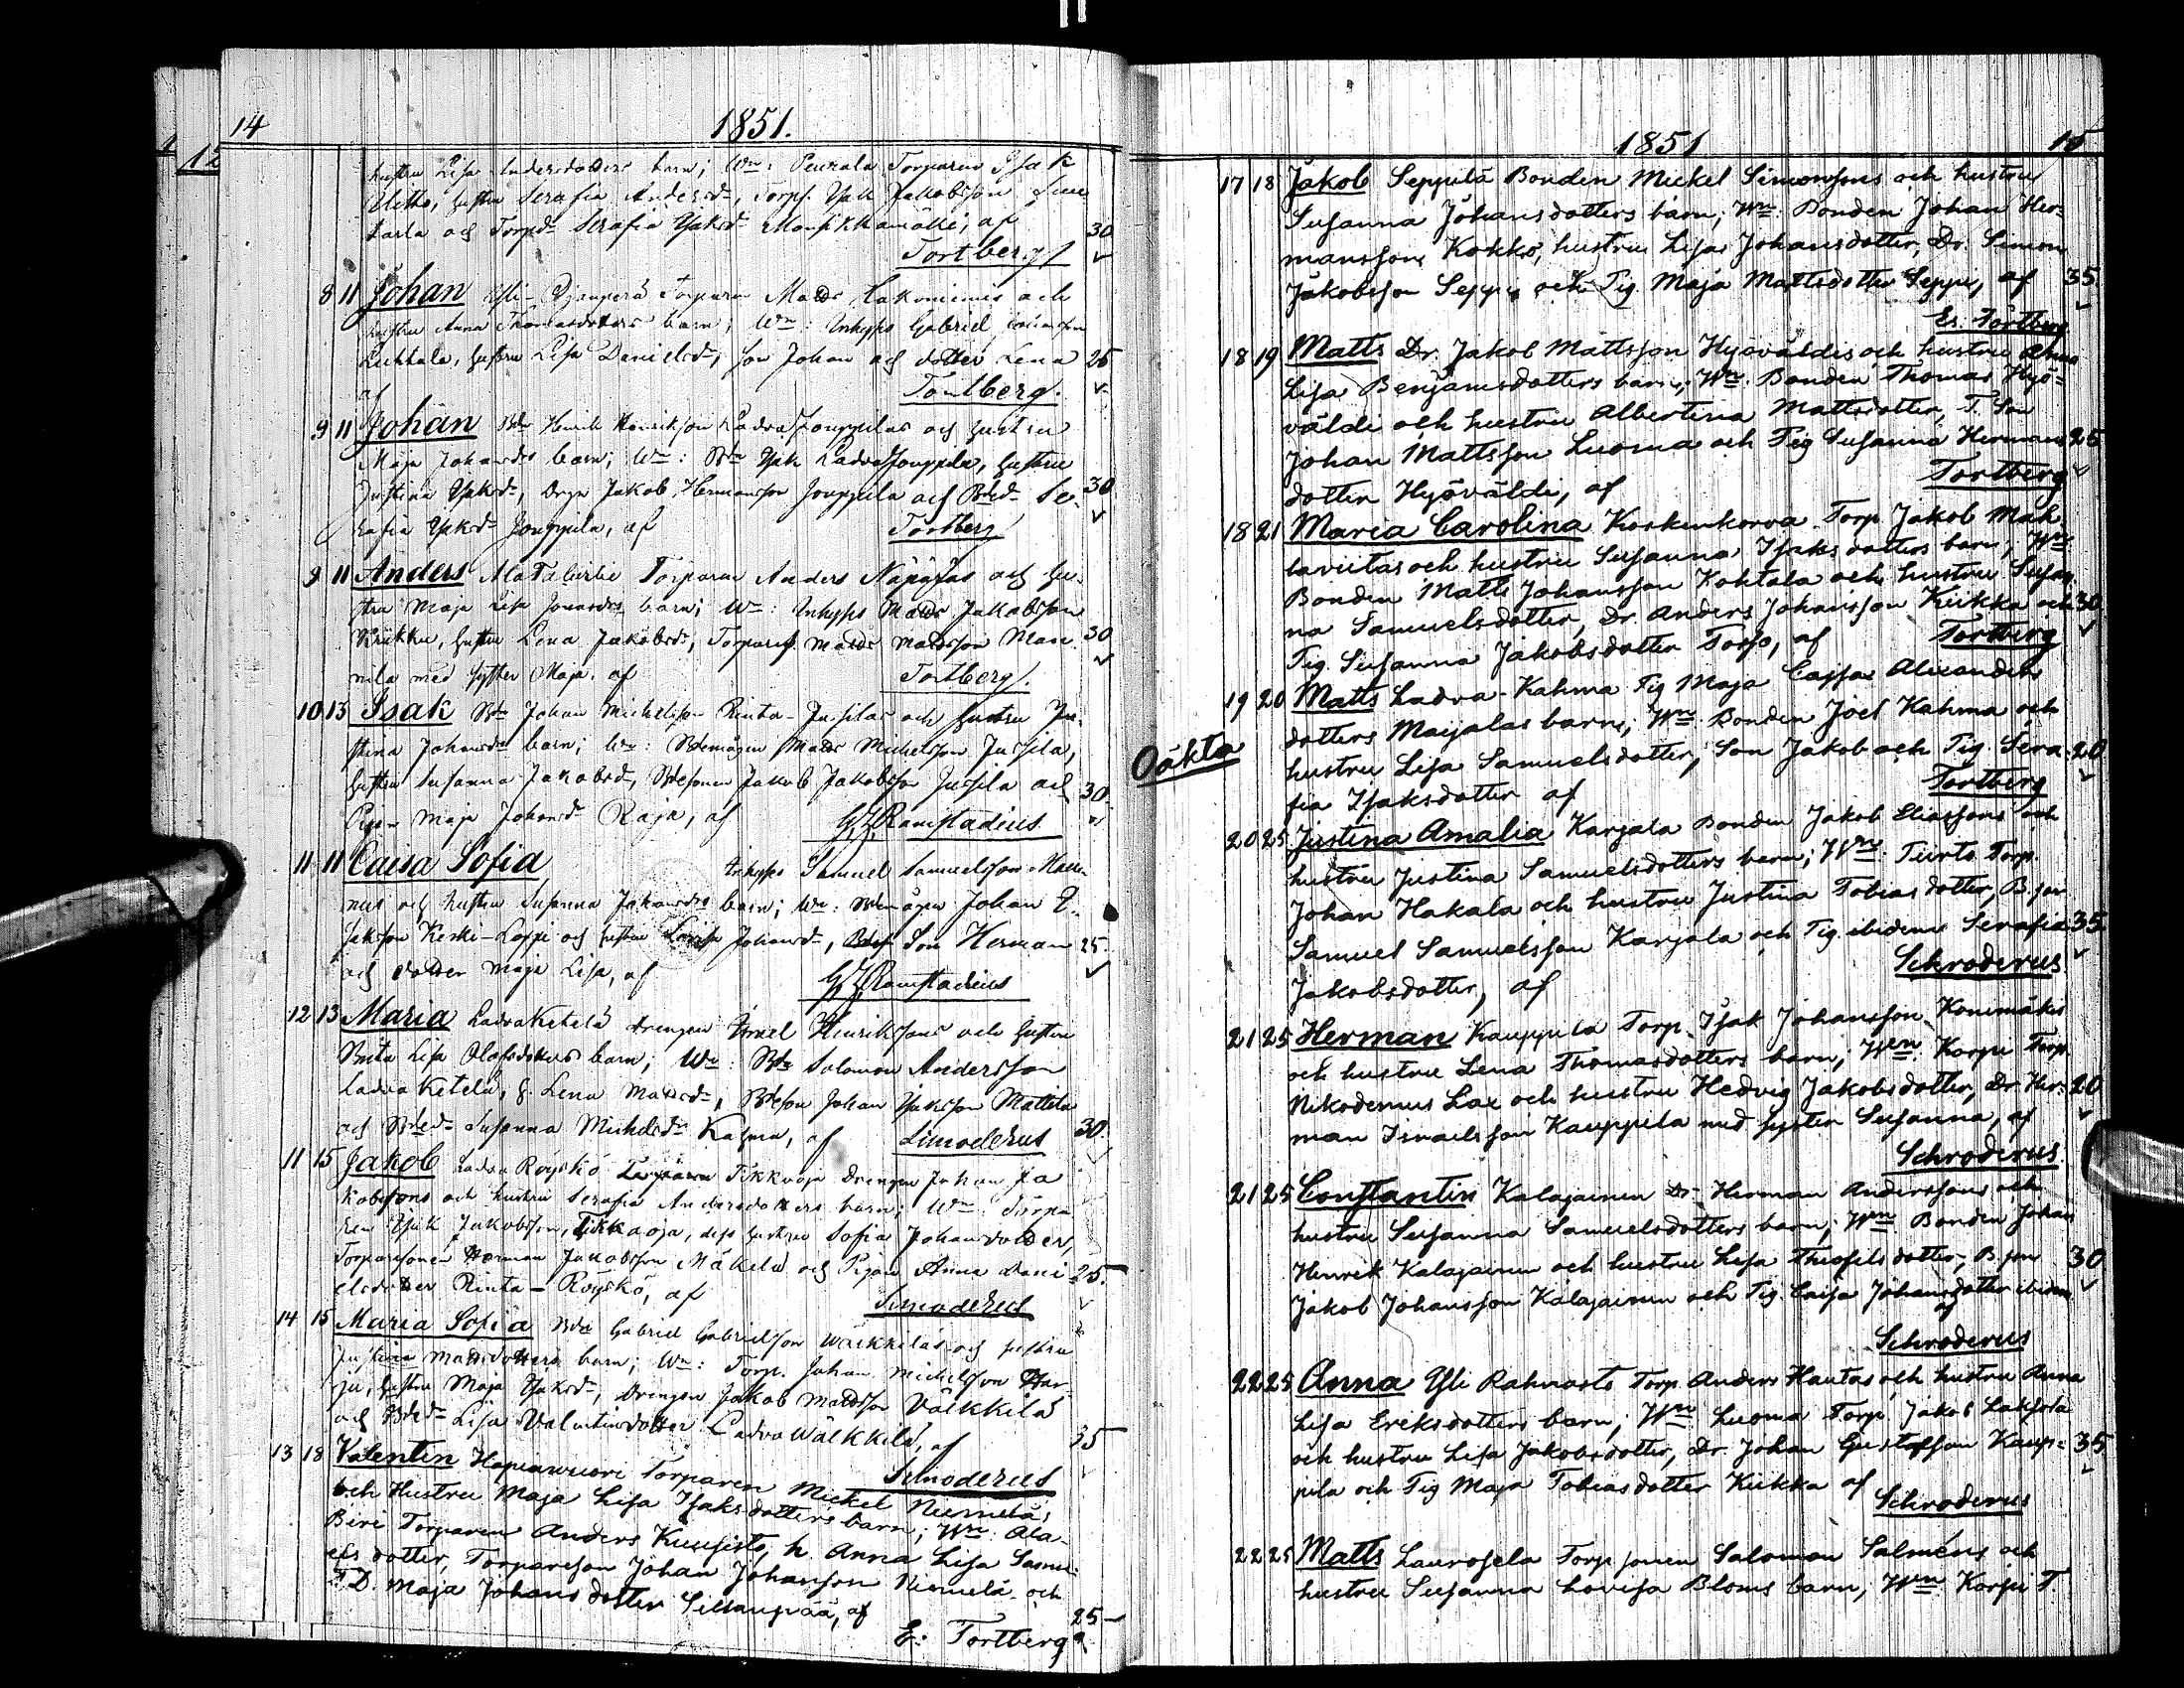 14
1851.
hustru Lisa Andersdotters barn; Wn: Peurala Torparen Isak
hustru Serafia Andersdr, Torps. Isak Jakobsson
karla och Torpdr Serafia Isaksdr af 30
Tortberg
8 11 Johan Torparen Matts Lakoniemis och
hustru Anna Thomasdotters barn; Wn: Inhyses Gabriel
Hustru Lisa Danielsdr, Son Johan och dotter Lena 25
af Tortberg.
9 11 Johan Bdn Henrik Henriksson Ladva Jouppilas och hustru
Maja Johansdrs barn; Wn: Bdn Isak Ladva Jouppila, hustru
Justina Isaksdr, Dryn Jakob Hermansson Jouppila och Bdedr Se- 30
rafia Isaksdr Jouppila, af Tortberg
9 11 Anders Torparen Anders Näpöjas och hu-
stru Maja Lisa Jonasdrs barn; Wn: Inhyses Matts Jakobsson
Kiikka, hustru Lena Jakobsdr, Torpares. Matts Mattsson Man- 30
nila med syster Maja. af Tortberg.
10 13 Isak Bdn Johan Michelsson Rinta-Jussilas och hustru Ju-
stina Johansdrs barn; Wn: Bdemågen Matts Michelsson Jussila,
hustru Susanna Jakobsdr, Bdesonen Jakob Jakobsson Jussila och 30
Pigan Maja Johansdr Raja, af Ramstadius
11 11 Caisa Sofia Inhyses Samuel Samuelsson
och hustru Susanna Johansdrs barn; Wn: Bdemågen Johan I-
saksson Keski-Loppi och hustru Lovisa Johansdr, Son Herman 25
och dotter Maja Lisa, af Ramstadius
12 13 Maria Ladva Ketelä drengen Israel Henrikssons och hustru
Brita Lisa Olofsdotters barn; Wn: Bdn Salomon Andersson
Ladva Ketelä, h. Lena Mattsdr, Bdeson Johan Isaksson Mattila
och Bdedr Susanna Michelsdr Kahma, af Simoderus 30.
11 15 Jakob Ladva Röyskö Torparen Tikkaoja Drengen Johan Ja-
kobssons och hustru Serafia Andersdotters barn; Wn: Torpa-
ren Isak Jakobsson, Tikkaoja, dess hustru Sofia Johansdotter,
Torparesonen Herman Jakobsson Mäkelä och Pigan Anna Dani- 25.
elsdotter Rinta-Röyskö, af Simoderus
14 15 Maria Sofia Bdn Gabriel Gabrielsson Wälkkiläs och hustru
Justina Mattsdotters barn; Wn: Torp. Johan Michelsson Har-
ju, hustru Maja Isaksdr, Drengen Jakob Mattsson Välkkilä
och Bdedr Lisa Valentinsdotter Ladva Wälkkilä, af 35
Simoderus
13 18 Valentin Hapuawuori Torparen Mickel Niemeläs
och Hustru Maja Lisa Isaksdotters barn; Wn: Ala-
Biri Torparen Anders Kuusisto, h. Anna Lisa Samu-
els dotter, Torpareson Johan Johansson Niemelä och
T.D. Maja Johansdotter Sillanpää, af 25
E: Tortberg
1851 15
17 18 Jakob Seppilä Bonden Mickel Simonssons och hustru
Susanna Johansdotters barn; Wn: Bonden Johan Her-
manssons Kokko, hustru Lisa Johansdotter, Dr. Simon
Jakobsson Seppi och Pig. Maja Mattsdotter Seppi, af 35
Er. Tortberg
18 19 Matts Dr. Jakob Mattsson Hyöväldis och hustru Anna
Lisa Benjamsdotters barn; Wn. Bonden Thomas Hyö-
väldi och hustru Albertina Mattsdotter, T. Son
Johan Mattsson Luoma och Pig Susanna Hermans 25
dotter Hyöväldi, af Tortberg
18 21 Maria Carolina Koskenkorva Torp Jakob Mah-
laviitas och hustru Susanna Isaksdotters barn; Wn
Bonden Matts Johansson Kohtala och hustru Susan
na Samuelsdotter, Dr. Anders Johansson Kiikka och 30
Pig. Susanna Jakobsdotter Torso, af Tortberg
19 20 Matts Ladva-Kahma Pig Maja Cajsa Alexanders
Oäkta
dotters Maijalas barn; Wn. Bonden Joel Kahma och
hustru Lisa Samuelsdotter, Son Jakob och Pig. Sera- 20
fia Isaksdotter af Tortberg
20 25 Justina Amalia Karjala Bonden Jakob Eliassons och
hustru Justina Samuelsdotters barn; Wn. Turto Torp.
Johan Hakala och hustru Justina Tobiasdotter, B. son
Samuel Samuelsson Karjala och Pig. ibidem Serafia 35
Jakobsdotter, af Schroderus
21 25 Herman Kauppila Torp. Isak Johansson Konimäkis
och hustru Lena Thomasdotters barn; Wn. Korpi Torp.
Nikodemus Lax och hustru Hedvig Jakobsdotter, Dr. Her- 20
man Israelsson Kauppila med syster Susanna, af
Schroderus.
21 25 Constantin Kalajainen Dr. Herman Anderssons och
hustru Susanna Samuelsdotters barn; Wn Bonden Johan
Henrik Kalajainen och hustru Lisa Thiofelsdotter, B. son 30
Jakob Johansson Kalajainen och Pig. Caisa Johansdotter ibidem
af
Schroderus
22 25 Anna Yli Rahnasto Torp. Anders Hautas och hustru Anna
Lisa Eriksdotters barn; Wn Luoma Torp. Jakob Laksola
och hustru Lisa Jakobsdotter, Dr. Johan Gustafsson Kaup- 35
pila och Pig Maja Tobiasdotter Kiikka af
Schroderus
22 25 Matts Laurosela Torp. sonen Salomon Salméns och
hustru Susanna Lovisa Bloms barn, Wn Korpi T